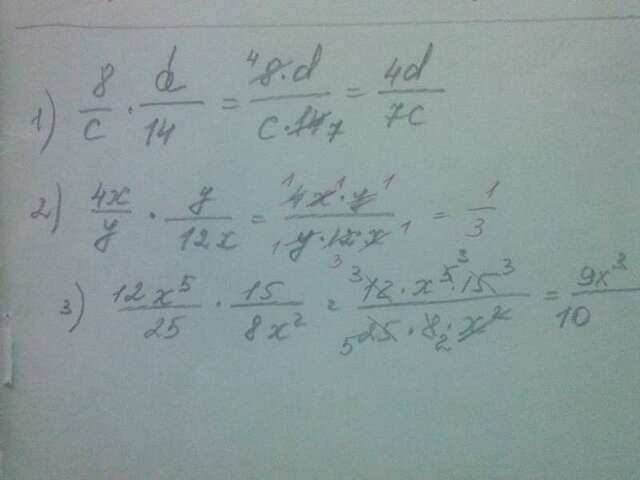 1) 8/c · d/14 = ⁴8·d/c·14 7 = 4d/7c
2) 4x/y · y/12x = ¹4x¹·y¹/₁y·12₃·x₁ = 1/3
3) 12x⁵/25 · 15/8x² = ³12·x⁵ ³·15³/₅25·8₂·x² = 9x³/10